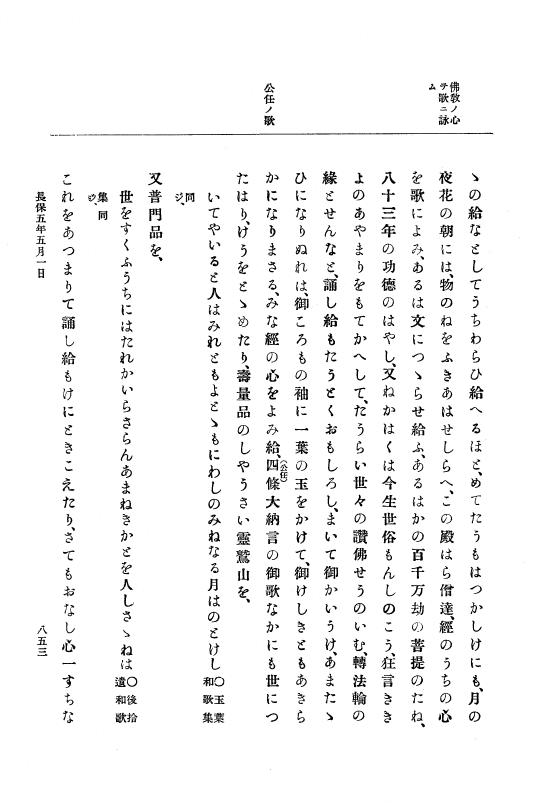 佛敎ノ心
ヲ歌ニ詠
ム
公任ノ歌
ゝの給なとしてうちわらひ給へるほと、めてたうもはつかしけにも、月の
夜花の朝には、物のねをふきあはせしらへ、この殿はら僧達、經のうちの心
を歌によみ、あるは文につゝらせ給ふ、あるはかの百千万劫の菩提のたね、
八十三年の功德のはやし、又ねかはくは今生世俗もんしのこう、狂言きき
よのあやまりをもてかへして、たうらい世々の讚佛せうのいむ、轉法輪の
緣とせんなと、誦し給もたうとくおもしろし、まいて御かいうけ、あまたゝ
ひになりぬれは、御ころもの袖に一葉の玉をかけて、御けしきともあきら
かになりまさる、みな經の心をよみ給、四條大納言の御歌なかにも世につ
(公任)
たはり、けうをとゝめたり、壽量品のしやうさい靈鷲山を、
いてやいると人はみれともよとゝもにわしのみねなる月はのとけし
〇玉葉
和歌集
同
ジ、
又普門品を、
世をすくふうちにはたれかいらさらんあまねきかとを人しさゝねは
〇後拾
遺和歌
集同
ジ、
これをあつまりて誦し給もけにときこえたり、さてもおなし心一すちな
長保五年五月一日
八五三